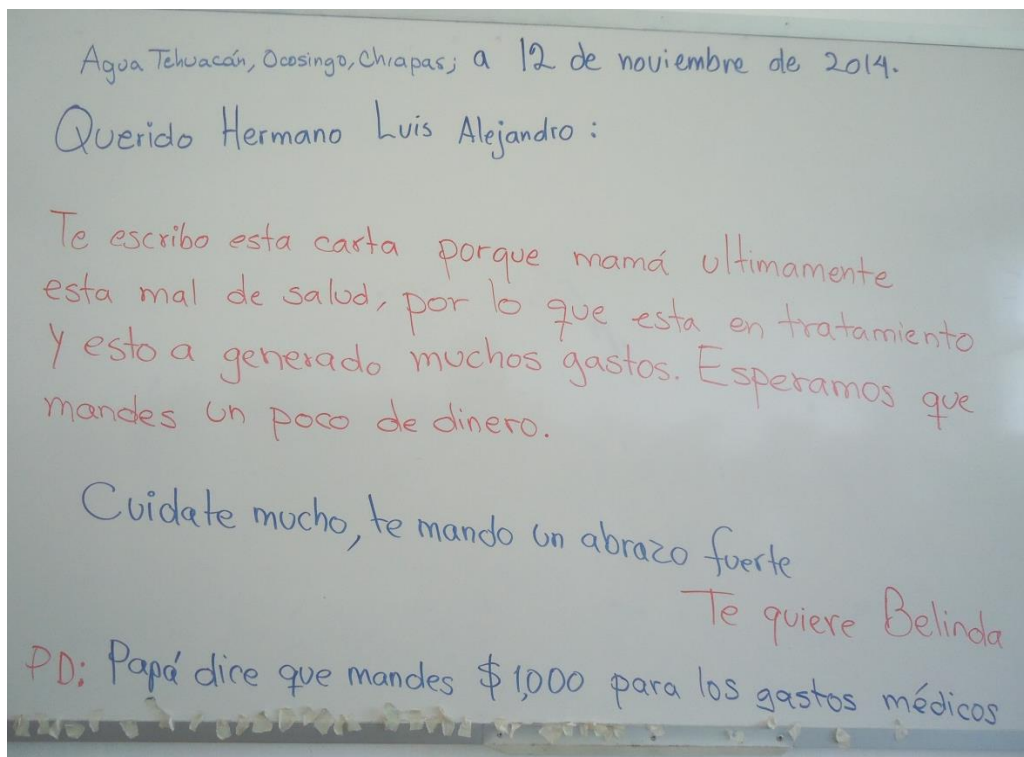 Agua Tehuacán, Ocosingo, Chiapas; a 12 de noviembre de 2014.
Querido Hermano Luis Alejandro:
Te escribo esta carta porque mamá ultimamente
esta mal de salud, por lo que esta en tratamiento
y esto a generado muchos gastos. Esperamos que
mandes un poco de dinero.
Cuidate mucho, te mando un abrazo fuerte
Te quiere Belinda
PD: Papá dice que mandes $1,000 para los gastos médicos